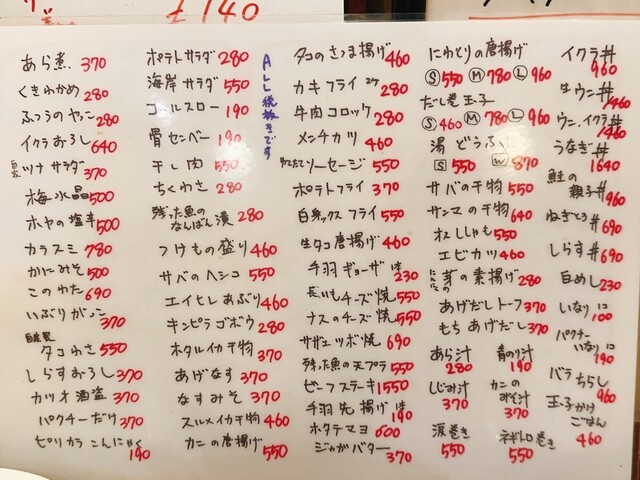 140
あら煮 370
くきわかめ 280
ふつうのやっこ 280
イクラおろし 640
ツナサラダ 370
梅水晶 500
ホヤの塩辛 500
カラスミ 780
かにみそ 500
このわた 690
いぶりがっこ 370
自家製
タコわさ 550
しらすおろし 370
カツオ酒盗 370
パクチーだけ 370
ピリカラこんにゃく 190
ポテトサラダ 280
海岸サラダ 550
コールスロー 190
骨センベー 190
干し肉 550
ちくわさ 280
残った魚の
なんばん漬 280
つけもの盛り 460
サバのヘシコ 550
エイヒレあぶり 460
キンピラゴボウ 280
ホタルイカ干物 370
あげなす 370
なすみそ 370
スルメイカ干物 460
カニの唐揚げ 550
ALL税抜きです
タコのさつま揚げ 460
カキフライ 2ケ 280
牛肉コロッケ 280
メンチカツ 460
ゆでたてソーセージ 550
ポテトフライ 370
白身ックスフライ 550
生タコ唐揚げ 460
手羽ギョーザ 1本 230
長いもチーズ焼 550
ナスのチーズ焼 550
サザエツボ焼 690
残った魚の天プラ 550
ビーフステーキ 1550
手羽先揚げ 1本 190
ホタテマヨ 600
ジャガバター 370
にわとりの唐揚げ
S 550 M 780 L 960
だし巻玉子
S 460 M 780 L 960
湯どうふ
S 550 W 870
サバの干物 550
サンマの干物 640
オスししゃも 550
エビカツ 460
にんにくの芽の素揚げ 280
あげだしトーフ 370
もちあげだし 370
あら汁 280
青のり汁 190
しじみ汁 370
カニの
みそ汁 370
涙巻き 550
ネギトロ巻き 550
イクラ丼 960
生ウニ丼 1460
ウニ、イクラ丼 1460
うなぎ丼 1640
鮭の
親子丼 960
ねぎとろ丼 690
しらす丼 690
白めし 230
いなり 1コ 100
パクチー
いなり 1コ 190
バラちらし 960
玉子かけ
ごはん 460